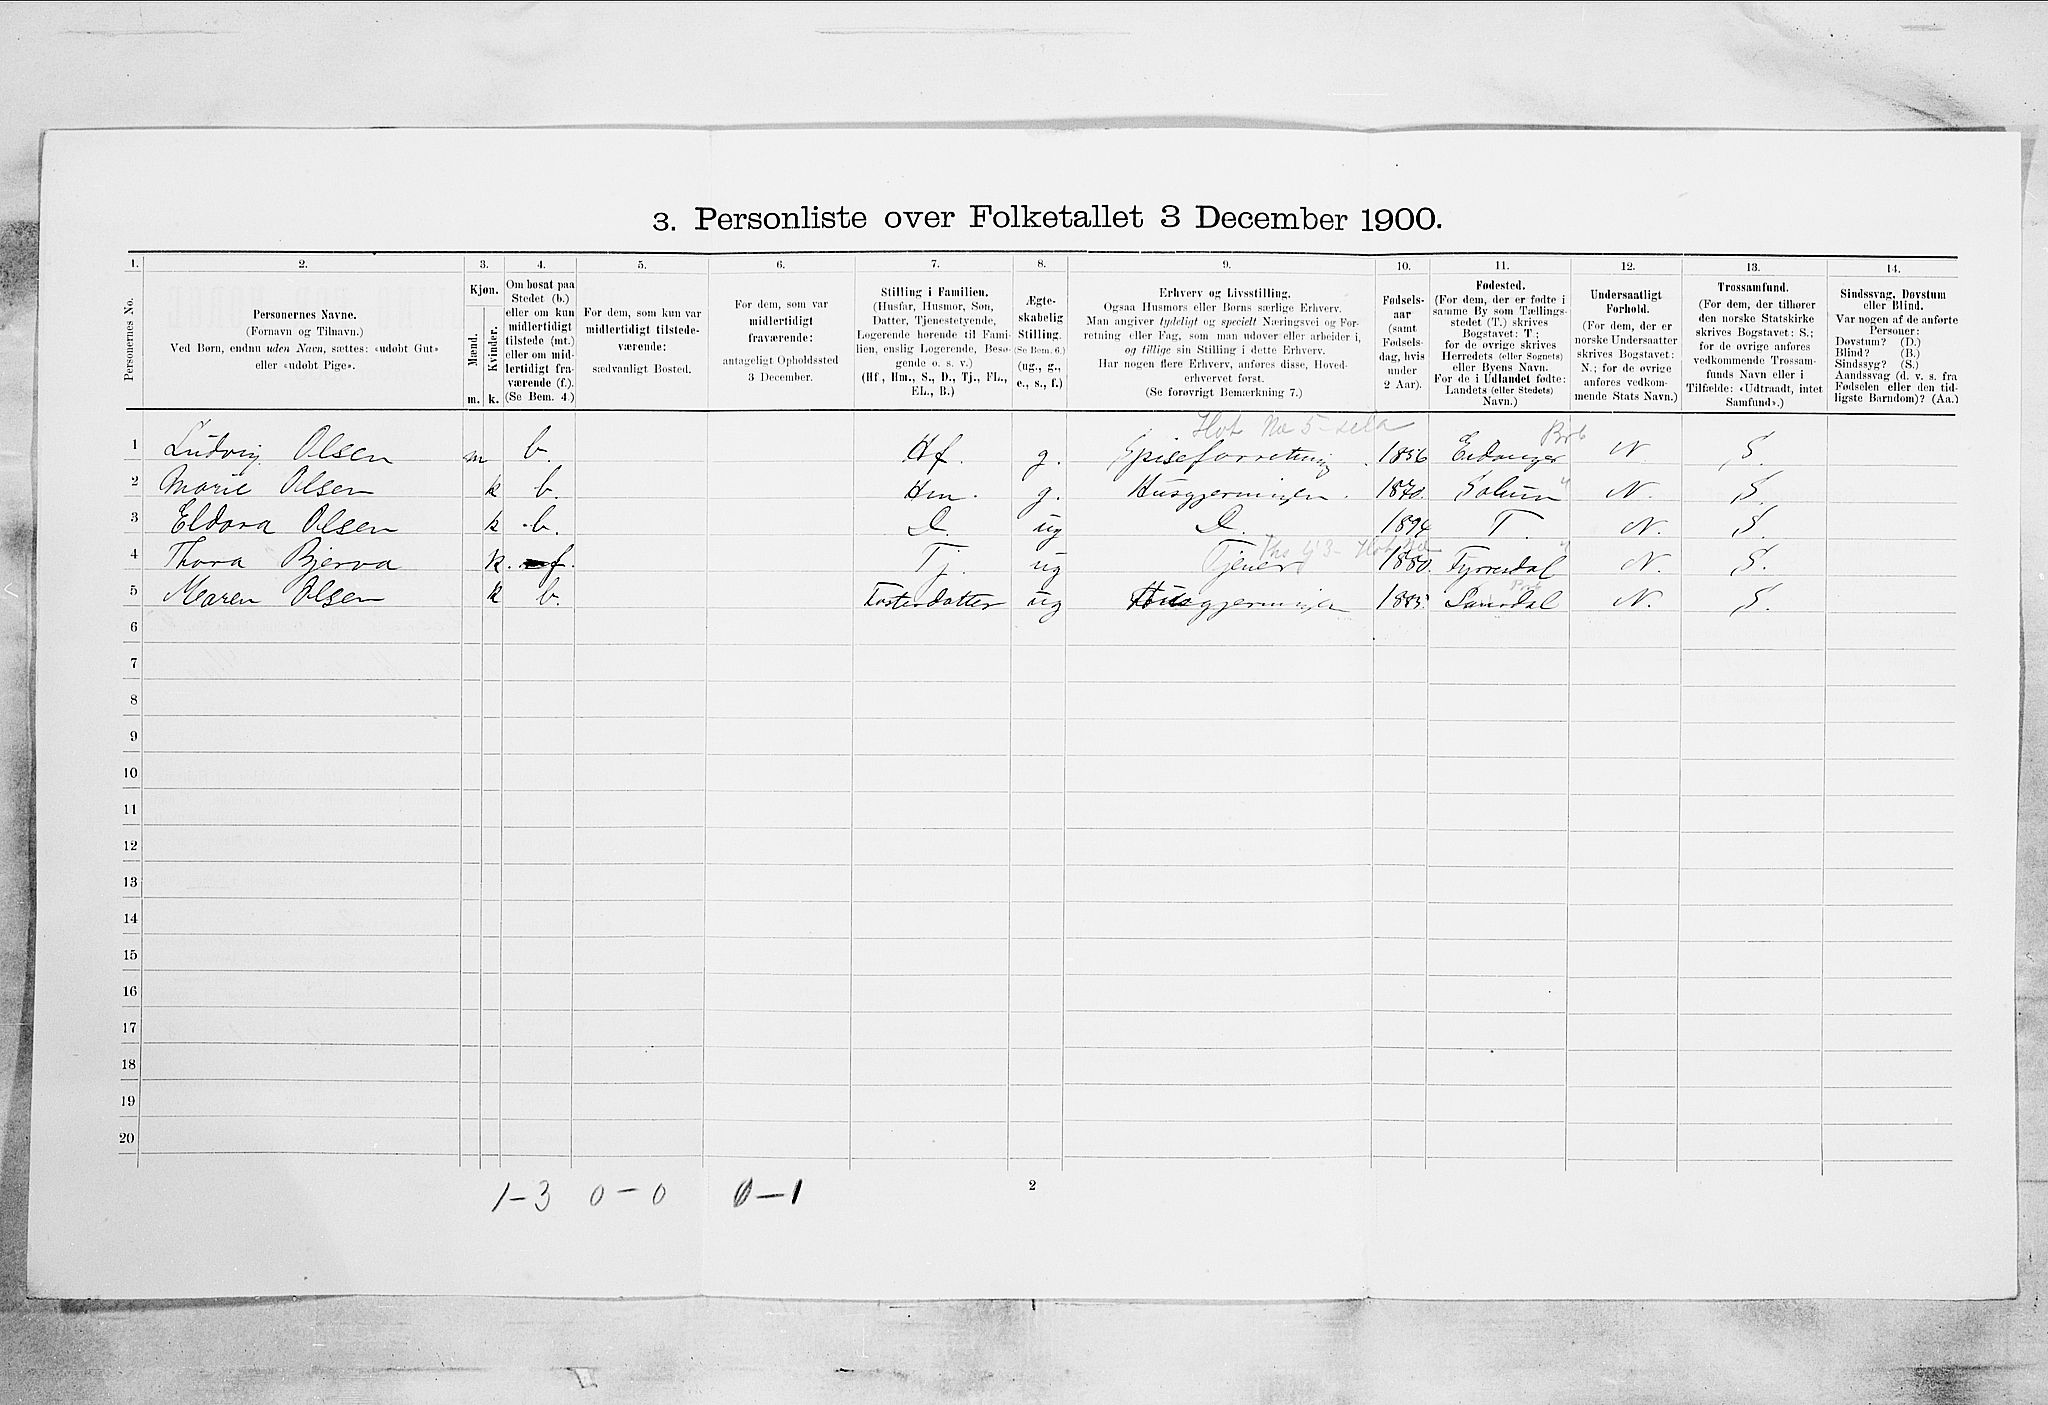 3. Personliste over Folketallet 3 December 1900.
1. 2. 3. 4. 5. 6. 7. 8. 9. 10. 11. 12. 13. 14.
Personernes No.
Personernes Navne.
(Fornavn og Tilnavn.)
Ved Børn, endnu uden Navn, sættes: «udøbt Gut»
eller «udøbt Pige».
Kjøn.
Mænd.
Kvinder.
m. k.
Om bosat paa
Stedet (b.)
eller om kun
midlertidigt
tilstede (mt.)
eller om mid-
lertidigt fra-
værende (f.).
(Se Bem. 4.)
For dem, som kun var
midlertidigt tilstede-
værende:
sædvanligt Bosted.
For dem, som var
midlertidigt
fraværende:
antageligt Opholdssted
3 December.
Stilling i Familien.
(Husfar, Husmor, Søn,
Datter, Tjenestetyende,
Logerende hørende til Fami-
lien, enslig Logerende, Besø-
gende o. s. v.)
(Hf., Hm., S., D., Tj., FL.,
EL., B.)
Ægte-
skabelig
Stilling.
(Se Bem. 6.)
(ug., g.,
e., s., f.)
Erhverv og Livsstilling.
Ogsaa Husmors eller Børns særlige Erhverv.
Man angiver tydeligt og specielt Næringsvei og For-
retning eller Fag, som man udøver eller arbeider i,
og tillige sin Stilling i dette Erhverv.
Har nogen flere Erhverv, anføres disse, Hoved-
erhvervet først.
(Se forøvrigt Bemærkning 7.)
Fødsels-
aar
(samt
Fødsels-
dag, hvis
under
2 Aar).
Fødested.
(For dem, der er fødte i
samme By som Tællings-
stedet (T.) skrives
Bogstavet: T;
for de øvrige skrives
Herredets (eller Sognets)
eller Byens Navn.
For de i Udlandet fødte:
Landets (eller Stedets)
Navn.)
Undersaatligt
Forhold.
(For dem, der er
norske Undersaatter
skrives Bogstavet:
N.; for de øvrige
anføres vedkom-
mende Stats Navn.)
Trossamfund.
(For dem, der tilhører
den norske Statskirke
skrives Bogstavet: S.;
for de øvrige anføres
vedkommende Trossam-
funds Navn eller i
Tilfælde: «Udtraadt, intet
Samfund».)
Sindssvag, Døvstum
eller Blind.
Var nogen af de anførte
Personer:
Døvstum? (D.)
Blind? (B.)
Sindssyg? (S.)
Aandssvag (d. v. s. fra
Fødselen eller den tid-
ligste Barndom)? (Aa.)
1 Ludvig Olsen m b. Hf. g. Spiseforretning. 1856 Eidanger N. S.
2 Marie Olsen k b. Hm. g. Husgjerningen. 1870. Solum N. S.
3 Eldora Olsen k b. D. ug D. 1894 T. N. S.
4 Thora Bjerva k. f. Tj. ug Tjener 1880. Tyrredal N. S.
5 Maren Olsen k b. Fosterdatter ug Husgjerningen 1885 N. S.
6
7
8
9
10
11
12
13
14
15
16
17
18
19
20
1-3 0-0 0-1
2